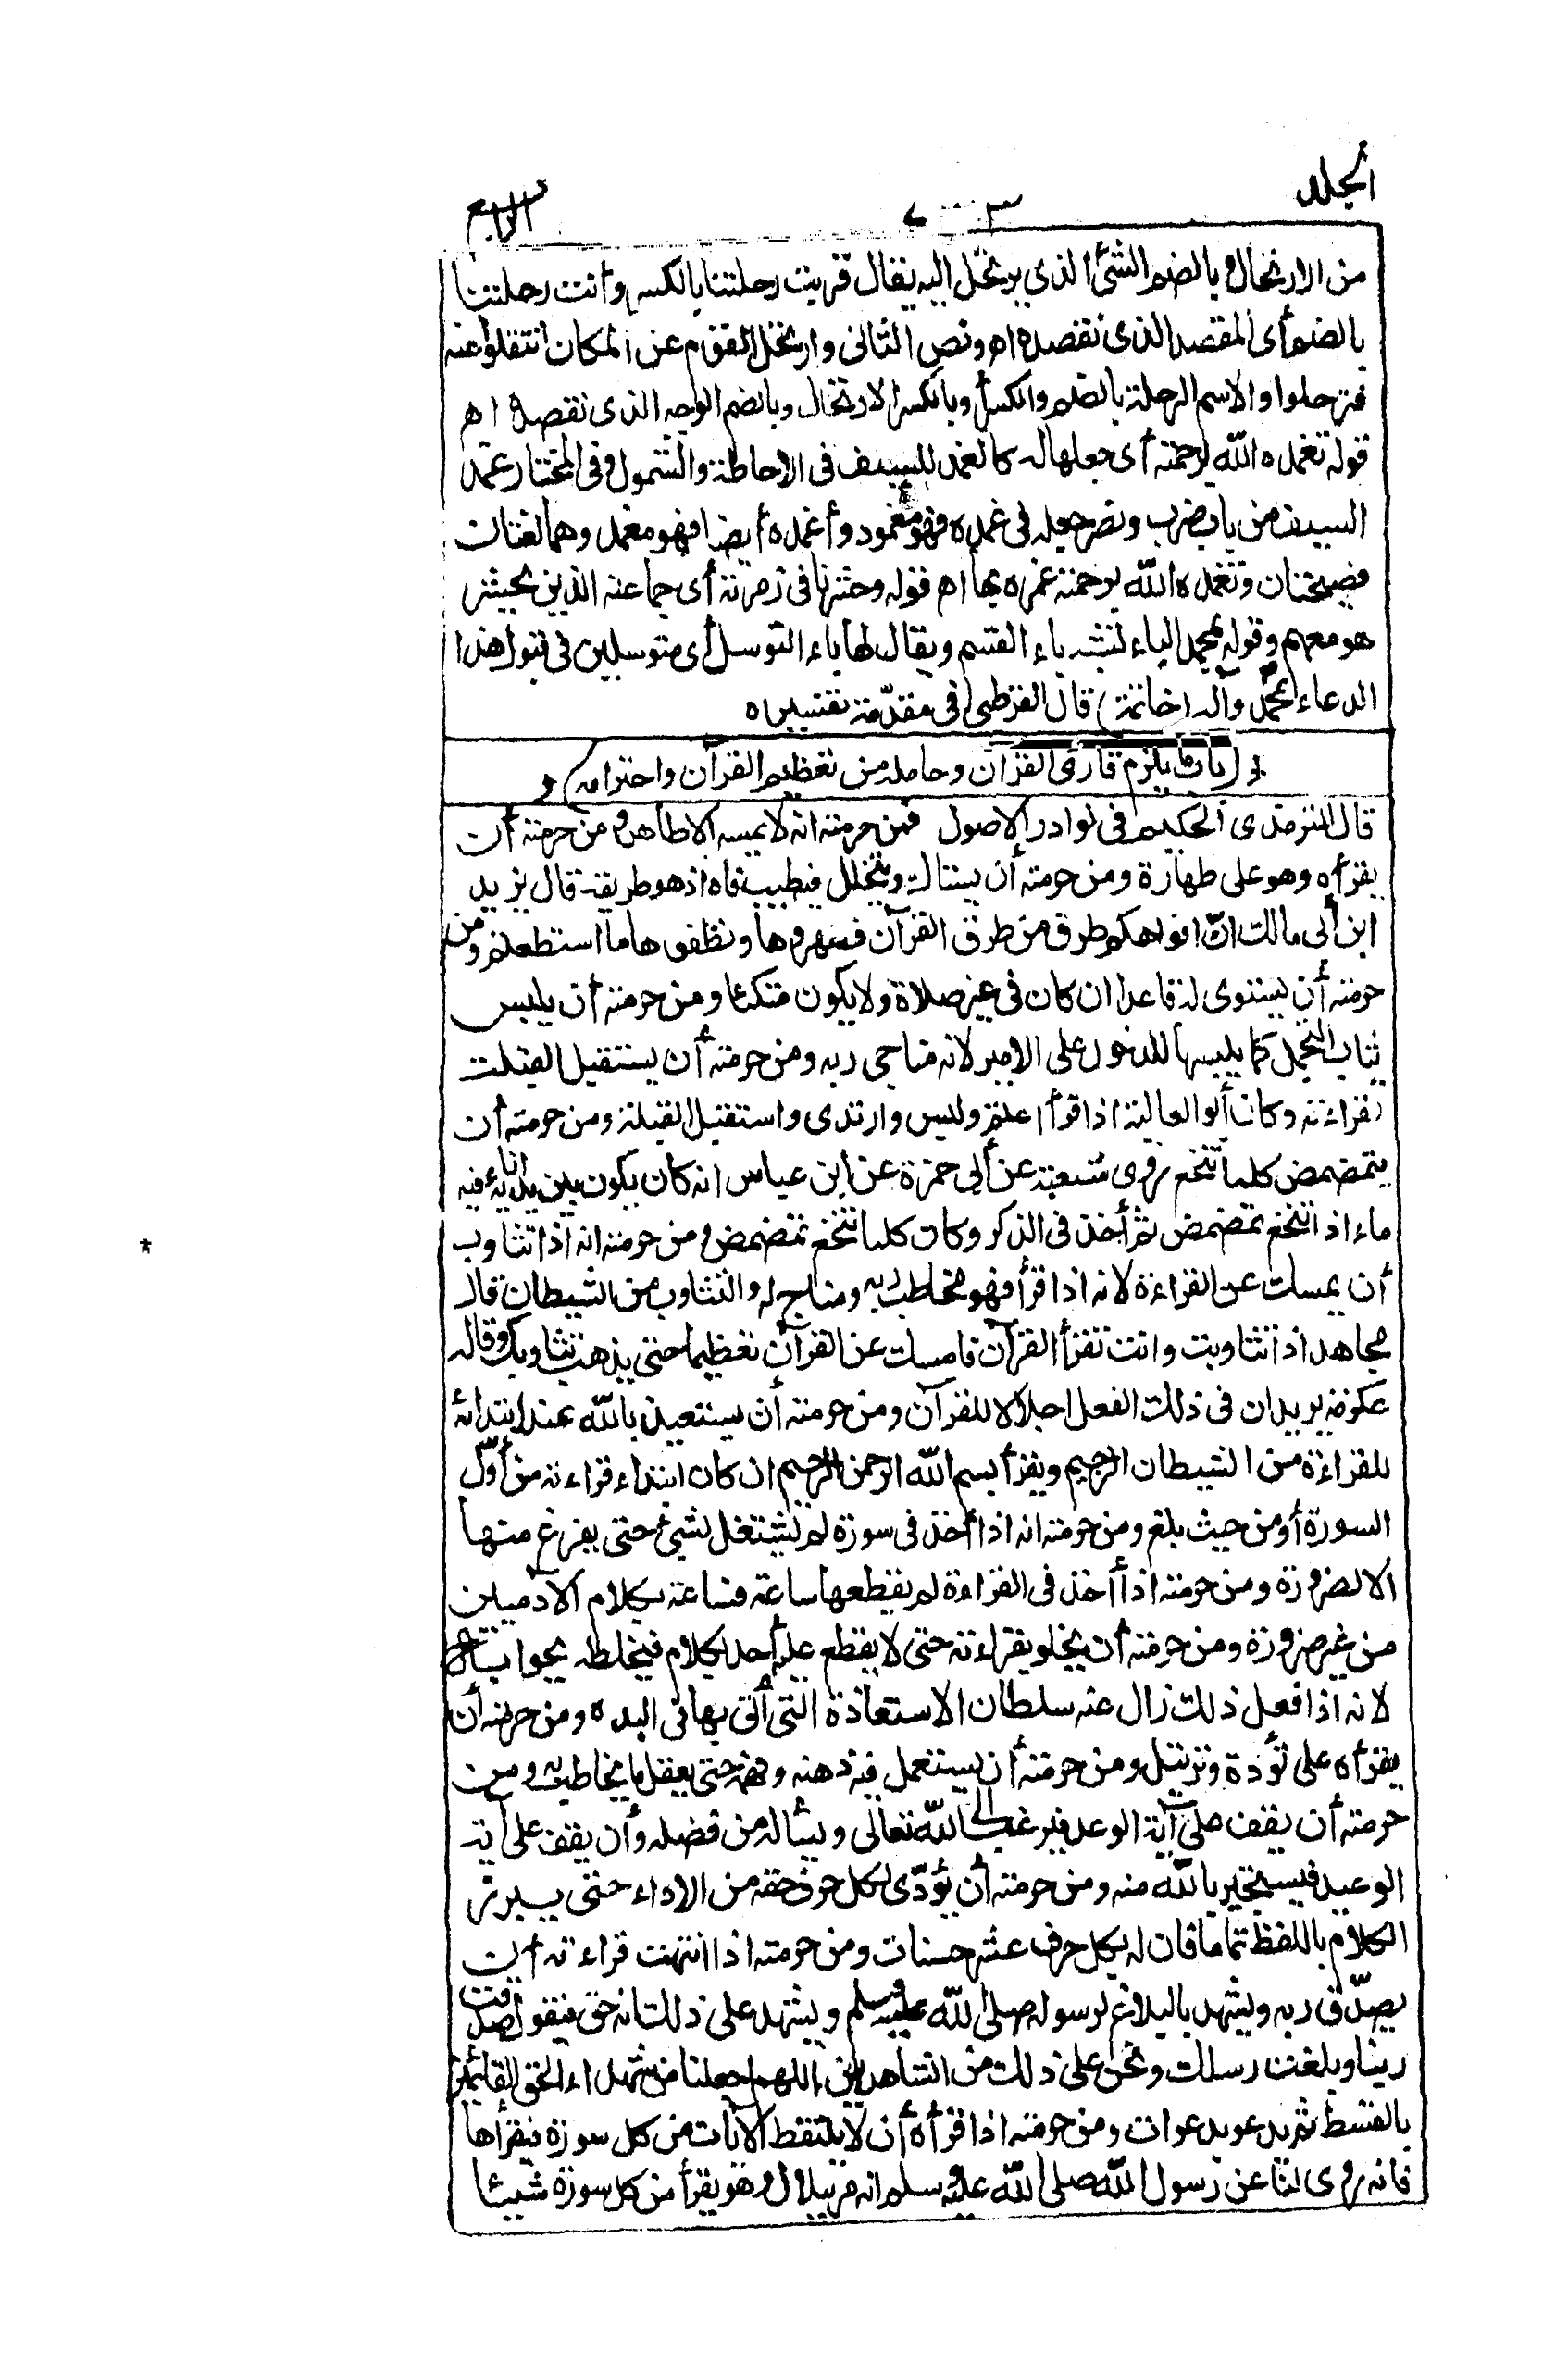 الجلد الرابع
من الارتحال وبالضم الشئ الذي يرتحل اليه يقال قربت رحلتنا بالكسر وأنت رحلتنا
بالضم أى المقصد الذى نقصده اه ونص الثانى وارتحل القوم عن المكان انتقلوا عنه
فترحلوا والاسم الرحلة بالضم والكسر أو بالكسر الارتحال وبالضم الوجه الذى تقصده اه
قوله تغمده الله برحمته أى جعلها له كالغمد للسيف فى الاحاطة والشمول وفى المختار غمد
السيف من باب ضرب ونصر جعله فى غمده فهو مغمود وأغمده أيضا فهو مغمد وهما لغتان
فصيحتان وتغمده الله برحمته غمره بها اه قوله وحشرنا فى زمرته أى جماعته الذين يحشر
هو معهم وقوله بمحمد الباء تشبه باء القسم ويقال لها باء التوسل أى متوسلين فى قبول هذا
الدعاء بمحمد وآله (خاتمة) قال القرطبى فى مقدّمة تفسيره
(باب ما يلزم قارئ القرآن وحامله من تعظيم القرآن واحترامه)
قال الترمذى الحكيم فى نوادر الاصول فمن حرمته انه لا يمسه الا طاهر ومن حرمته أن
يقرأه وهو على طهارة ومن حرمته أن يستاك ويتخلل فيطيب فاه اذ هو طريقه قال يزيد
ابن أبى مالك انّ افواهكم طرق من طرق القرآن فطهروها ونظفوها ما استطعتم ومن
حرمته أن يستوى له قاعدا ان كان فى غير صلاة ولا يكون متكئا ومن حرمته أن يلبس
ثياب التجمل كما يلبسها للدخول على الامير لانه مناجى ربه ومن حرمته أن يستقبل القبلة
لقراءته وكان أبو العالية اذا قرأ اعتم ولبس وارتدى واستقبل القبلة ومن حرمته أن
يتمضمض كلما تنخع روى شعبة عن أبى حمزة عن ابن عباس انه كان يكون بين يديه اناء فيه
ماء اذا تنخع تمضمض ثم أخذ فى الذكر وكان كلما تنخع تمضمض ومن حرمته انه اذا تثاوب
أن يمسك عن القراءة لانه اذا قرأ فهو مخاطب ربه ومناج له والتثاوب من الشيطان قال
مجاهد اذا تثاوبت وانت تقرأ القرآن فامسك عن القرآن تعظيما حتى يذهب تثاوبك وقاله
عكرمة يريد ان فى ذلك الفعل اجلالا للقرآن ومن حرمته أن يستعيذ بالله عند ابتدائه
للقراءة من الشيطان الرجيم ويقرأ بسم الله الرحمن الرحيم ان كان ابتداء قراءته من أوّل
السورة أو من حيث بلغ ومن حرمته انه اذا أخذ فى سورة لم يشتغل بشئ حتى يفرغ منها
الا لضرورة ومن حرمته اذا أخذ فى القراءة لم يقطعها ساعة فساعة بكلام الآدميين
من غير ضرورة ومن حرمته أن يخلو بقراءته حتى لا يقطع عليه أحد بكلام فيخلطه بجوابه
لانه اذا فعل ذلك زال عنه سلطان الاستعاذة التى أتى بها فى البدء ومن حرمته أن
يقرأه على تؤدة وترتيل ومن حرمته أن يستعمل فيه ذهنه وفهمه حتى يعقل ما يخاطب به ومن
حرمته أن يقف على آية الوعد فيرغب الى الله تعالى ويسأله من فضله وأن يقف على آية
الوعيد فيستجير بالله منه ومن حرمته أن يؤدّى لكل حرف حقه من الاداء حتى يبرز
الكلام باللفظ تماما فان له بكل حرف عشر حسنات ومن حرمته اذا انتهت قراءته أن
يصدّق ربه ويشهد بالبلاغ لرسوله صلى الله عليه وسلم ويشهد على ذلك انه حق فيقول صدقت
ربنا وبلغت رسلك ونحن على ذلك من الشاهدين اللهم اجعلنا من شهداء الحق القائمين
بالقسط ثم يدعو بدعوات ومن حرمته اذا قرأه أن لا يلتقط الآيات من كل سورة فيقرأها
فانه روى لنا عن رسول الله صلى الله عليه وسلم انه مر ببلال وهو يقرأ من كل سورة شيئا